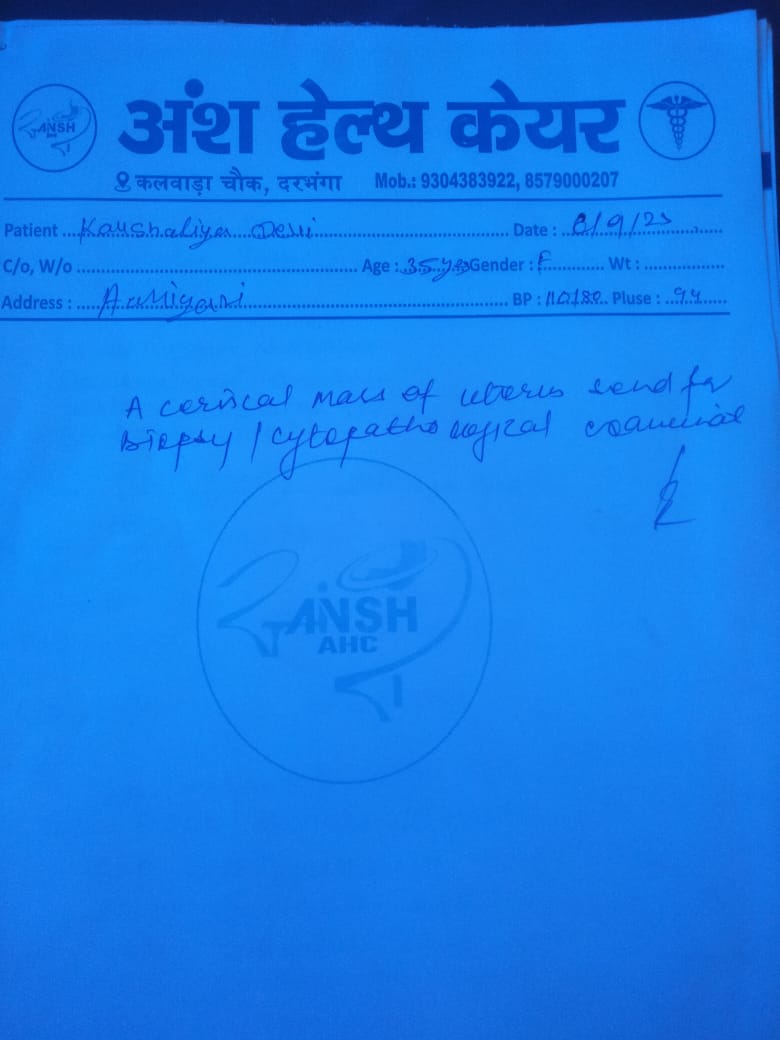 ANSH
AHC
अंश हेल्थ केयर
कलवाड़ा चौक, दरभंगा Mob.: 9304383922, 8579000207
Patient ... Kaushaliya Devi ... Date : ... /9/25 ...
C/o, W/o ... Age : 35 yrs Gender : F ... Wt : ...
Address : ... BP : 110/80 .. Pluse : ..94 .....
A cervical mass of uterus send for
Biopsy / cytopathological
ANSH
AHC